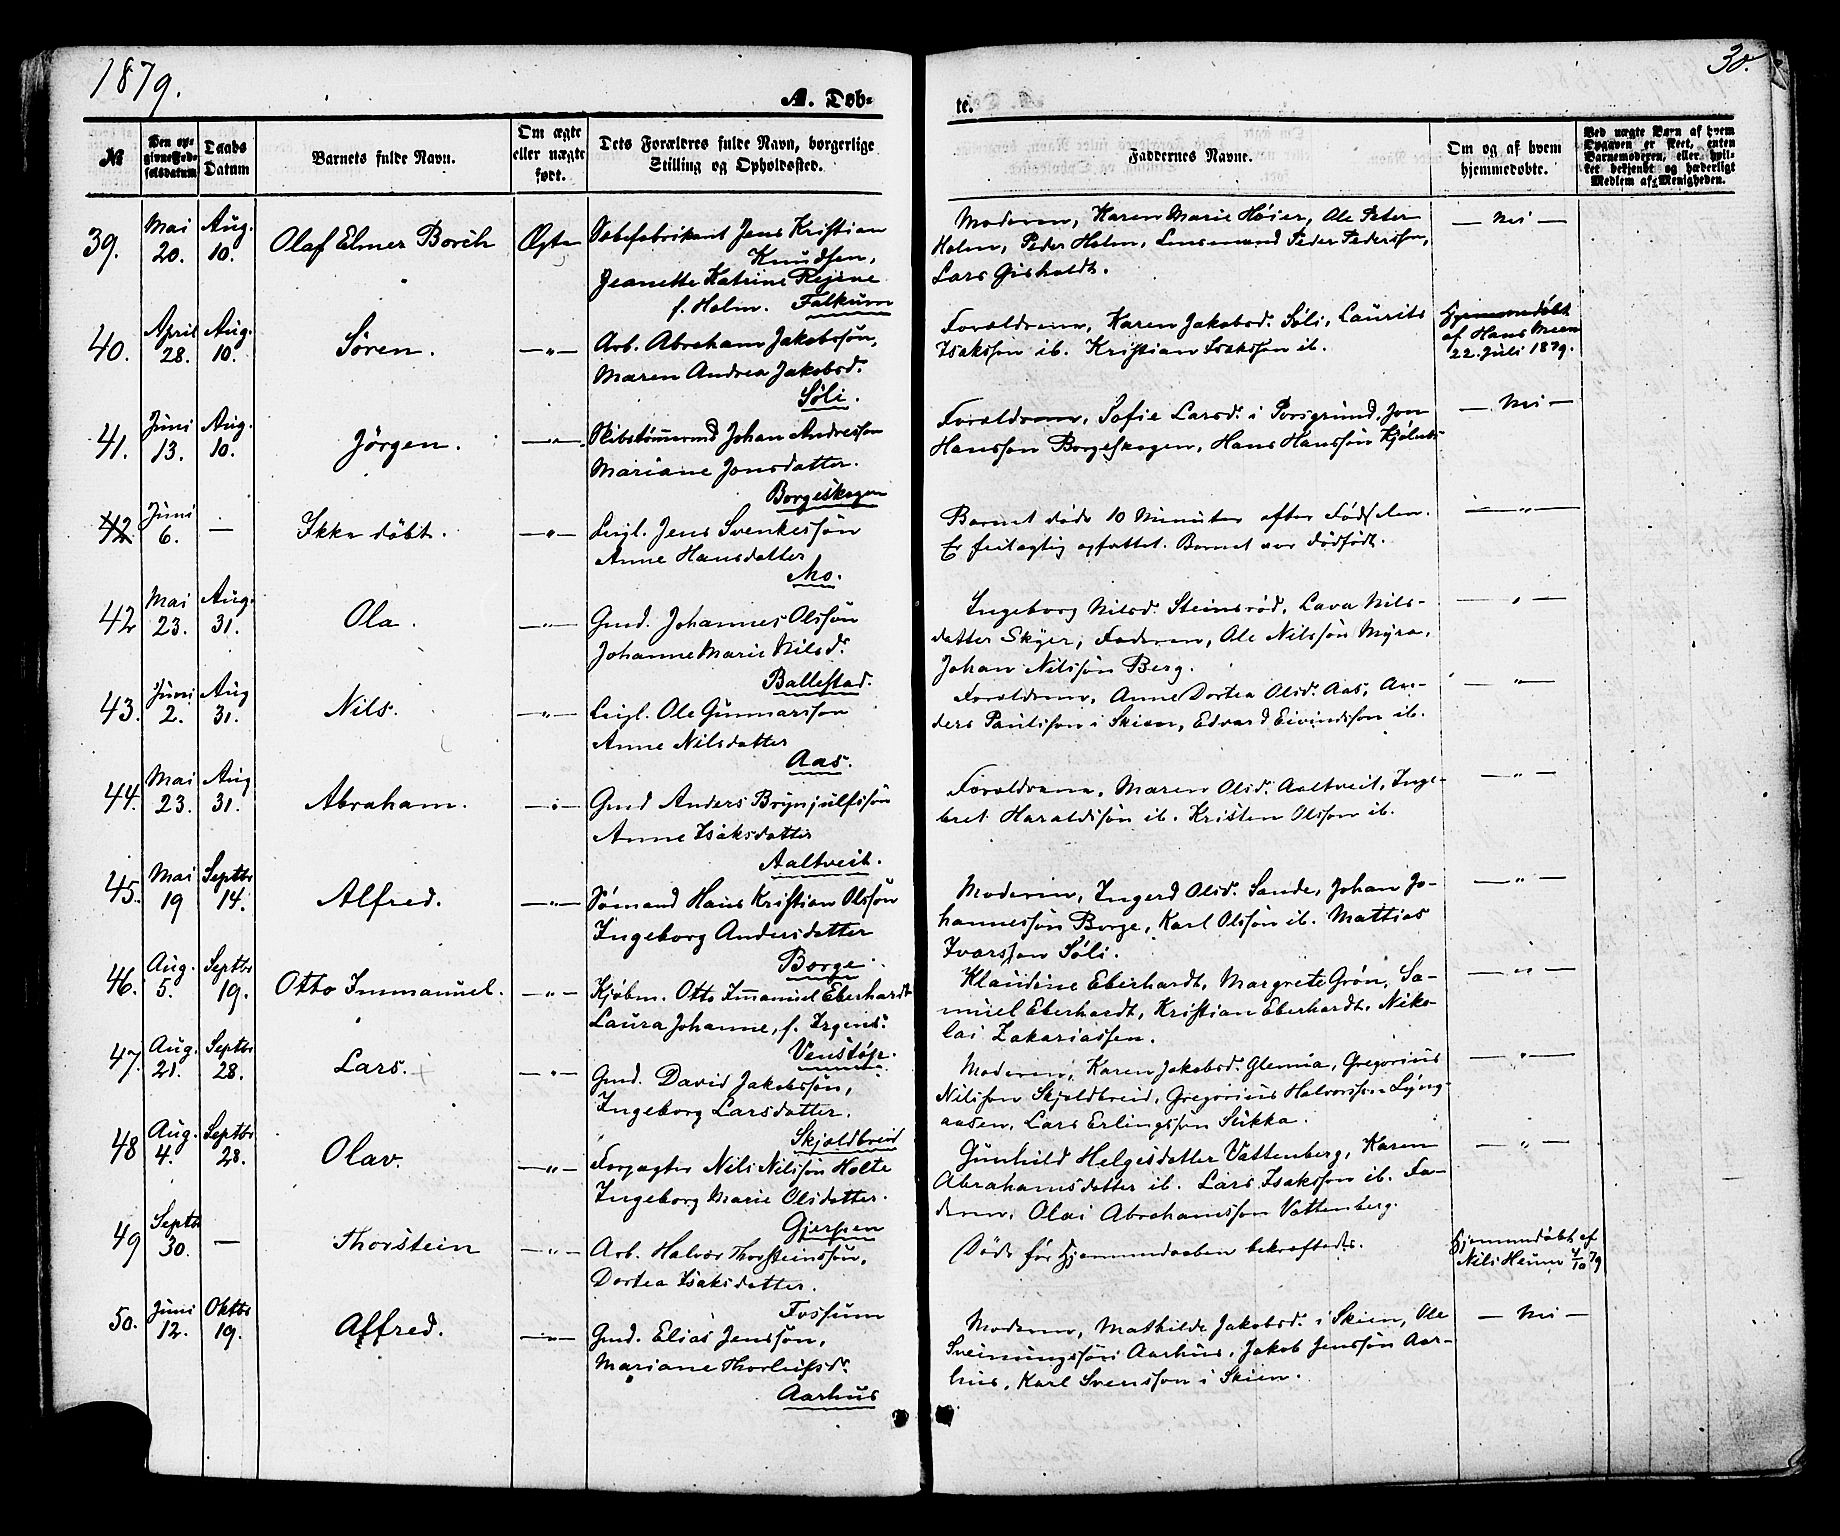 1879.
30.
A. Døb-
te.
№
Den op-
givne Fød-
selsdatum
Daabs
Datum
Barnets fulde Navn.
Om ægte
eller uægte
født.
Dets Forældres fulde Navn, borgerlige
Stilling og Opholdssted.
Faddernes Navne.
Om og af hvem
hjemmedøbt.
Ved uægte Barn af hvem
Opgaven er skeet, enten
Barnemoderen, eller hvil-
ket bekjendt og hæderligt
Medlem af Menigheden.
39.
Mai
20.
Aug.
10.
Olaf Elmer Borch
Ægte
Sæbefabrikant Jens Kristian
Knudsen,
Jeanette Katrine Regine
f. Holm. Falkum
Moderen, Karen Marie Høier, Ole Peter
Holm, Peder Holm, Lensmand Peder Pederssen,
Lars Gisholdt.
— Nei —
40.
April
28.
Aug.
10.
Søren.
—"—
Arb. Abraham Jakobssøn,
Maren Andrea Jakobsd.
Søli.
Forældrene, Karen Jakobsd. Søli, Laurits
Isakssøn ib. Kristian Isakssøn ib.
Hjemmedøbt
af Hans Moen
22. Juli 1879.
41.
Juni
13.
Aug.
10.
Jörgen.
—"—
Skibstømmermd Johan Andressøn
Mariane Jonsdatter.
Borgeskogen
Forældrene, Sofie Larsd. i Porsgrund, Jon
Hanssøn Borgeskogen, Hans Hanssøn Kjølnes
— Nei —
42.
Juni
6.
—
Ikke døbt.
—"—
Leigl. Jens Svenkessøn
Anne Hansdatter
Mo.
Barnet døde 10 Minuter efter Fødselen.
Er feilagtig opfattet. Barnet var dødfødt.
—"—
42
Mai
23.
Aug.
31.
Ola.
—"—
Gmd. Johannes Olssøn
Johanne Marie Nilsd.
Ballestad.
Ingeborg Nilsd. Steinsrød, Lava Nils-
datter Skyer, Faderen, Ole Nilssøn Myra,
Johan Nilssøn Berg.
—"—
43.
Juni
2.
Aug
31.
Nils.
—"—
Leigl. Ole Gunnarssøn
Anne Nilsdatter
Aas.
Forældrene, Anne Dortea Olsd. Aas, An-
ders Paulssøn i Skien, Edvard Eivindssøn ib.
—"—
44.
Mai
23.
Aug
31.
Abraham.
—"—
Gmd Anders Brynjulfssøn
Anne Isaksdatter
Aaltveit.
Forældrene, Maren Olsd. Aaltveit, Inge-
bret Haraldssøn ib. Kristen Olssøn ib.
—"—
45.
Mai
19
Septbr
14.
Alfred.
—"—
Sømand Hans Kristian Olssøn
Ingeborg Andersdatter
Borge.
Moderen, Ingerd Olsd. Sande, Johan Jo-
hannessøn Borge, Karl Olssøn ib. Mattias
Ivarssøn Søli.
—"—
46.
Aug.
5.
Septbr
19.
Otto Immanuel.
—"—
Kjøbm. Otto Immanuel Eberhardt
Laura Johanne, f. Irgens.
Venstøp.
Klaudine Eberhardt, Margrete Grøn, Sa-
muel Eberhardt, Kristian Eberhardt, Niko-
lai Zakariassen.
—"—
47.
Aug.
21.
Septbr
28.
Lars.
—"—
Gmd. David Jakobssøn,
Ingeborg Larsdatter.
Skjældbreid
Moderen, Karen Jakobsd. Glenna, Gregorius
Nilssøn Skjældbreid, Gregorius Halvorssøn Lyng-
aasen, Lars Erlingssøn Stikka.
—"—
48
Aug.
4.
Septbr
28.
Olav.
—"—
Forpagter Nils Nilssøn Holte
Ingeborg Marie Olsdatter.
Gjerpen
Gunhild Helgesdatter Vattenberg, Karen
Abrahamsdatter ib. Lars Isakssøn ib. Fa-
deren, Olai Abrahamssøn Vattenberg.
—"—
49
Septbr
30.
—
Thorstein
—"—
Arb. Halvor Thorsteinssøn,
Dortea Isaksdatter.
Fossum
Døde før Hjemmedaaben bekræftedes.
Hjemmedøbt af
Nils Heum 4/10 79
50.
Juni
12.
Oktbr
19.
Alfred.
—"—
Gmd. Elias Jenssøn,
Mariane Thorleifsd.
Aarhus
Moderen, Mathilde Jakobsd. i Skien, Ole
Sveinungssøn Aarhus, Jakob Jenssøn Aar-
hus, Karl Svenssøn i Skien.
— Nei —